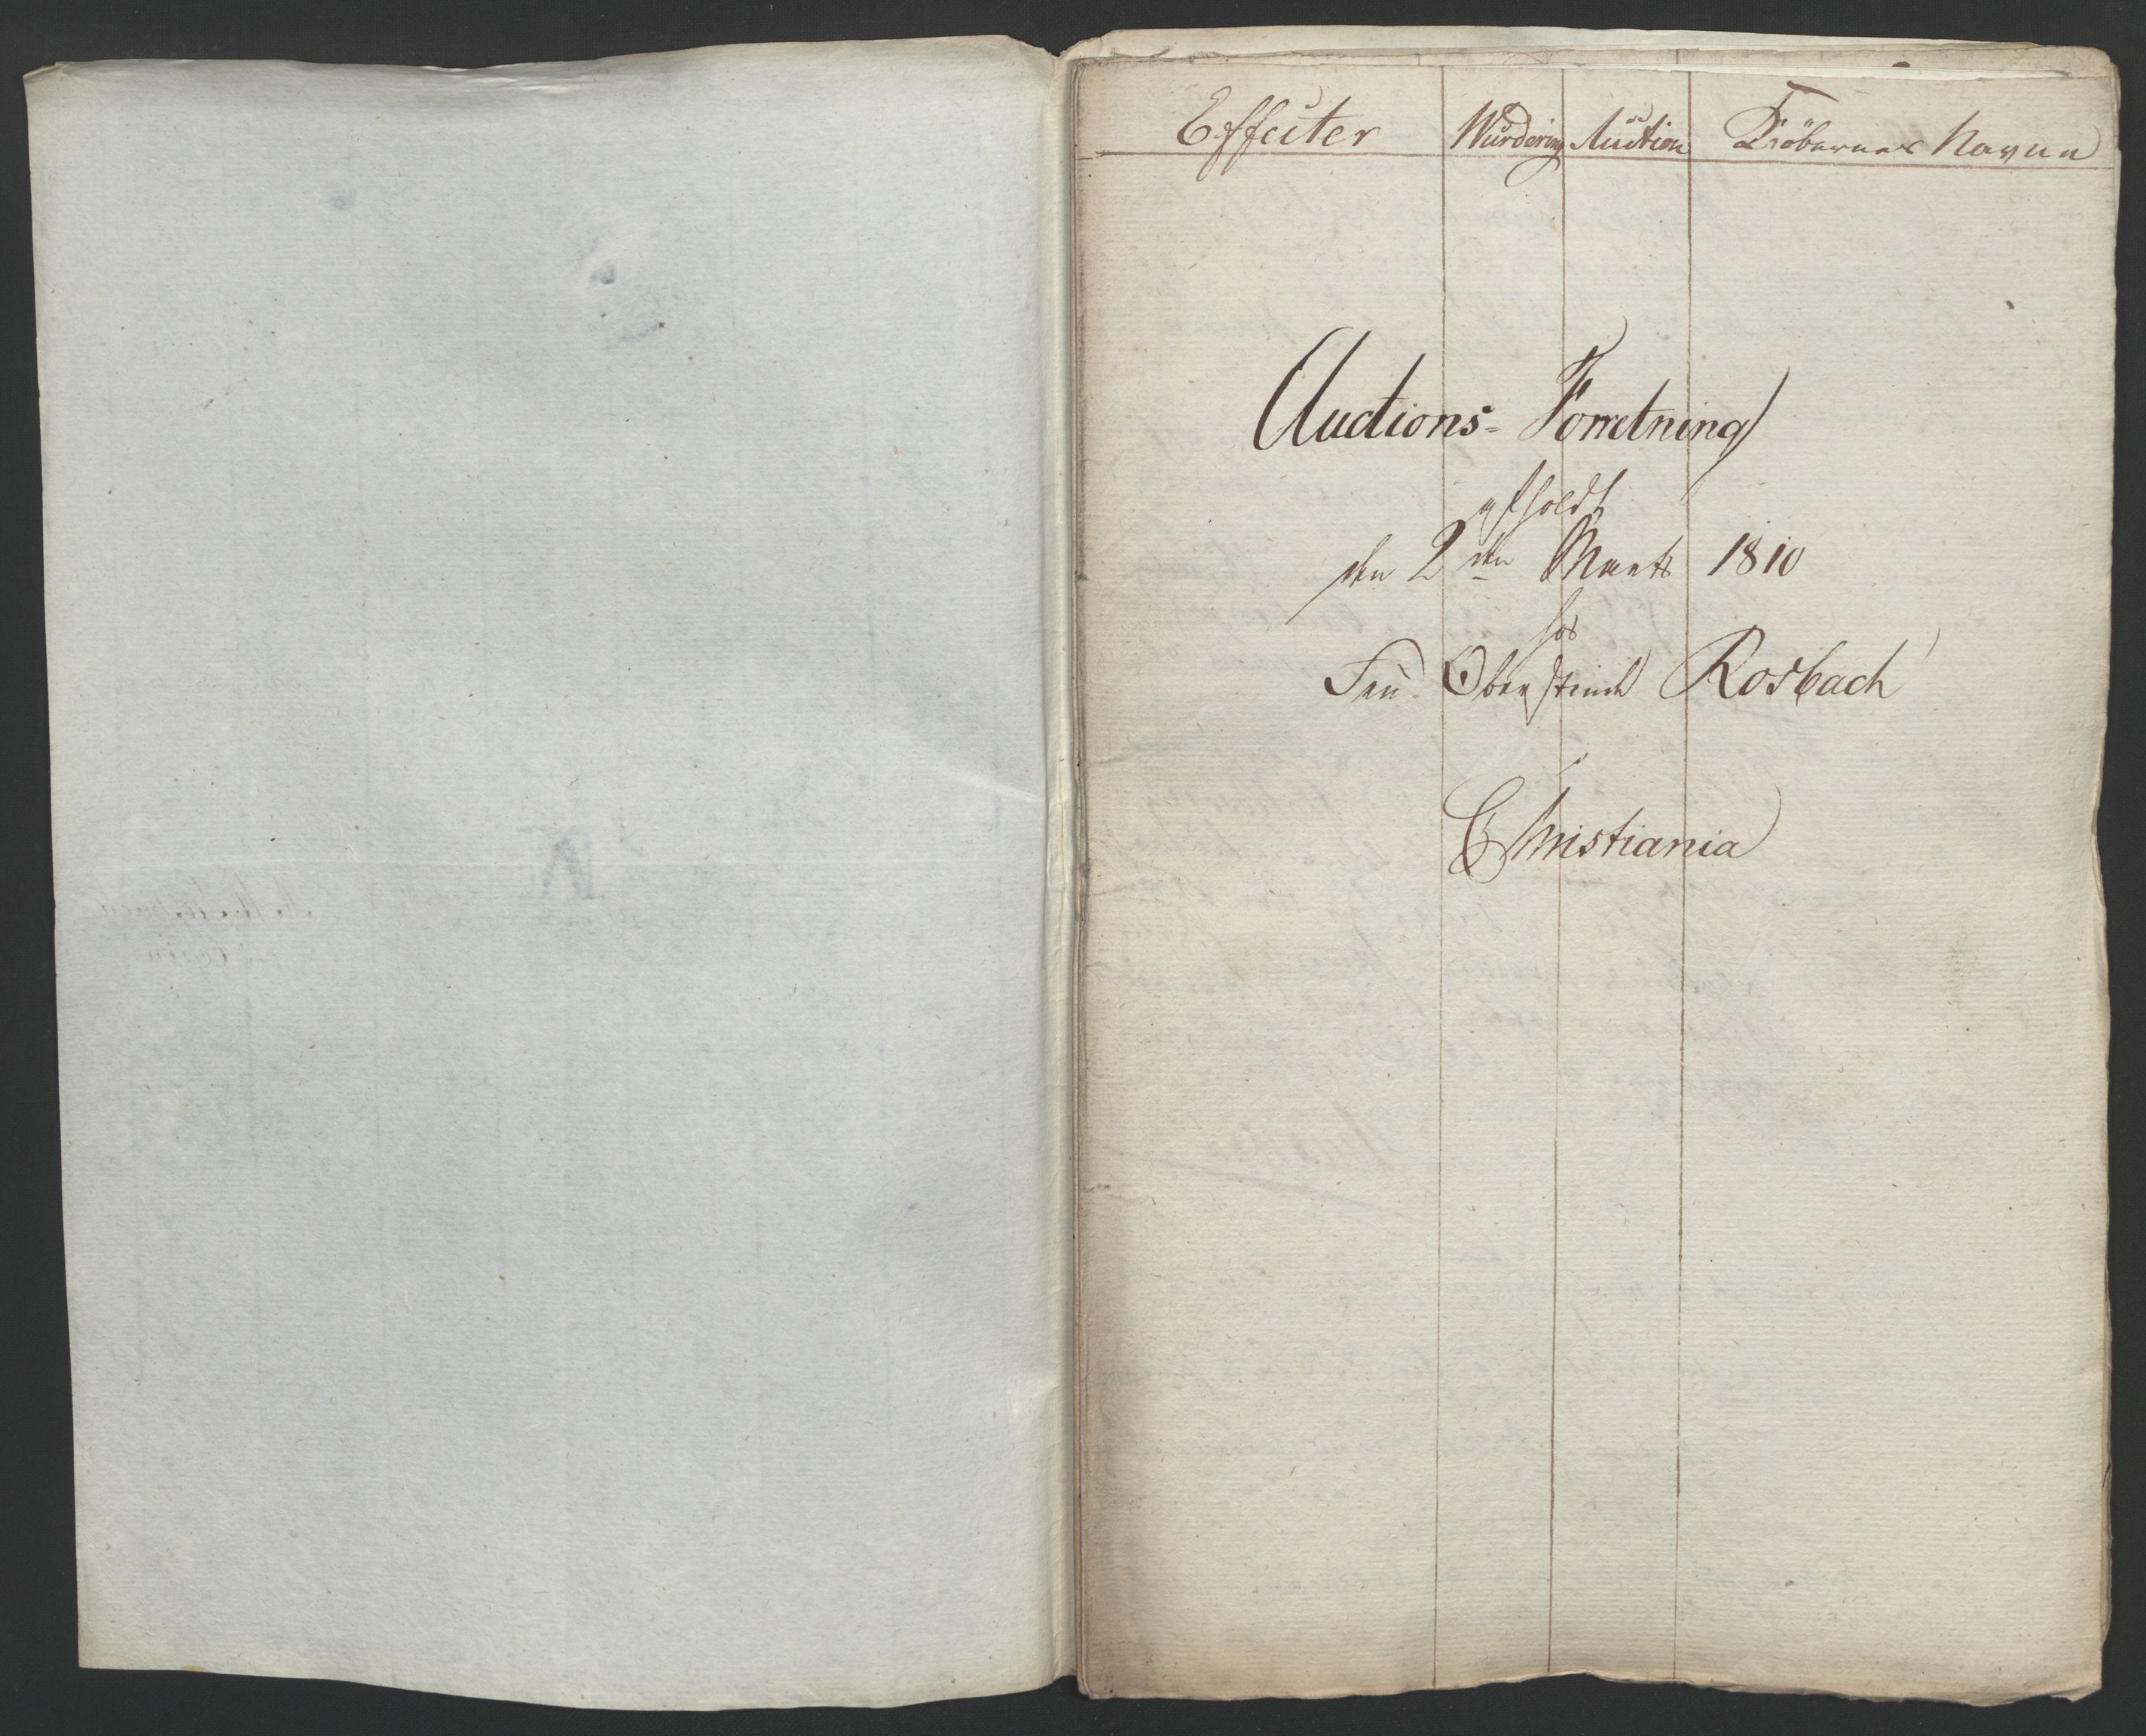 Effecter Wurdering Auction Kiöbernes Navne
Auctions-Forretning
afholdt
den 2den Marts 1810
hos
Frue Oberstinde Rosbach
Christiania